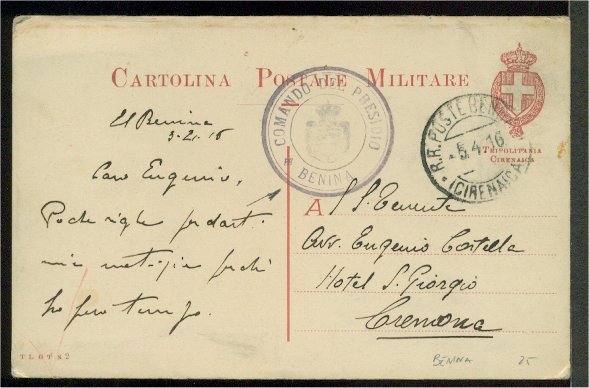 CARTOLINA POSTALE MILITARE
TRIPOLITANIA
CIRENAICA
COMANDO DEL PRESIDIO
BENINA
R.R. POSTE BENINA
5.4.16
(CIRENAICA)
El Benina
Caro Eugenio,
Poche righe per darti
mie notizie perchè
ho poco tempo.
A S. Tenente
Avv. Eugenio Costella
Hotel S. Giorgio
Cremona
BENINA 25